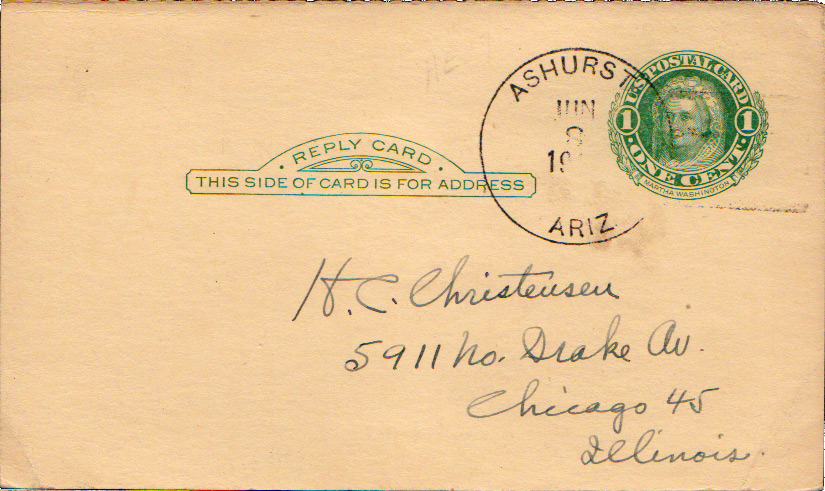 ASHURST
JUN
8
19
ARIZ.
U.S. POSTAL CARD
1 1
ONE CENT
MARTHA WASHINGTON
REPLY CARD
THIS SIDE OF CARD IS FOR ADDRESS
H. C. Christensen
5911 No. Drake Av.
Chicago 45
Illinois.